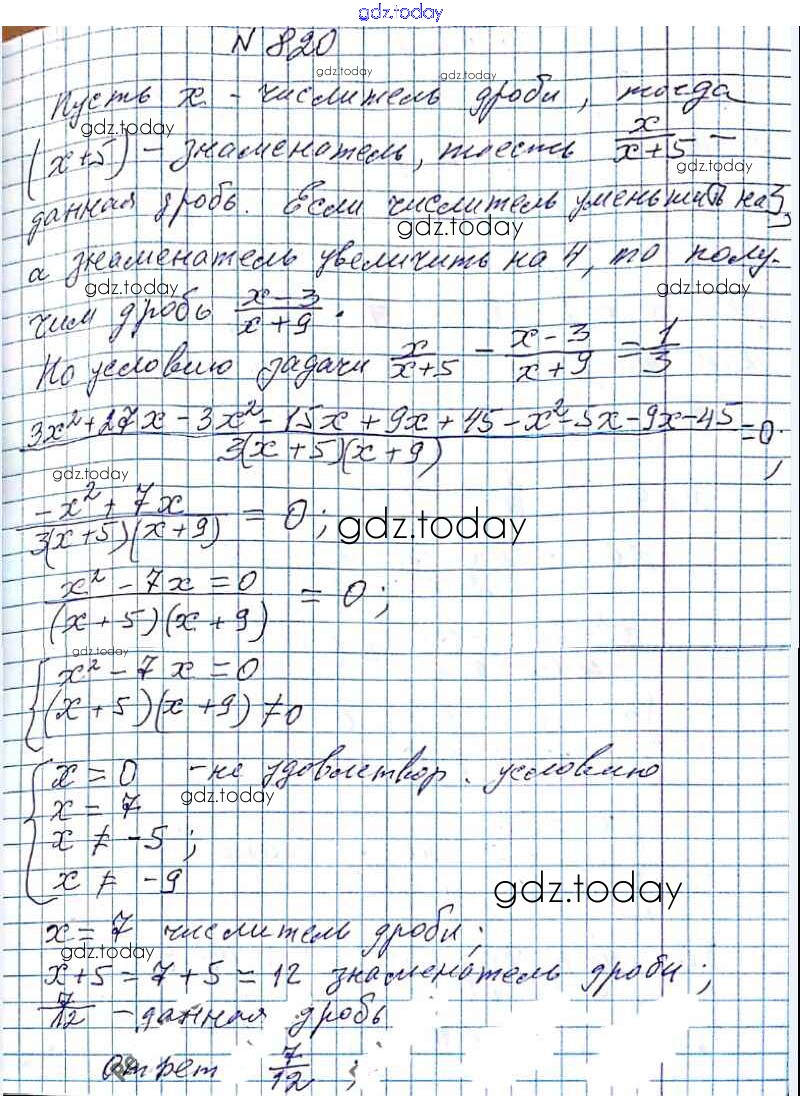 gdz.today
N 820
Пусть x - числитель дроби, тогда
(x+5) - знаменатель, тоесть x/(x+5) -
данная дробь. Если числитель уменьшить на 3,
а знаменатель увеличить на 4, то полу-
чим дробь (x-3)/(x+9).
По условию задачи x/(x+5) - (x-3)/(x+9) = 1/3
(3x²+27x-3x²-15x+9x+45-x²-5x-9x-45)/(3(x+5)(x+9)) = 0;
(-x²+7x)/(3(x+5)(x+9)) = 0;
(x²-7x=0)/((x+5)(x+9)) = 0;
{ x²-7x=0
(x+5)(x+9)≠0
{ x=0 -не удовлетвор. условию
x=7
x≠-5;
x≠-9
x=7 числитель дроби;
x+5=7+5=12 знаменатель дроби;
7/12 - данная дробь
ответ 7/12;
gdz.today
gdz.today
gdz.today
gdz.today
gdz.today
gdz.today
gdz.today
gdz.today
gdz.today
gdz.today
gdz.today
gdz.today
gdz.today
gdz.today